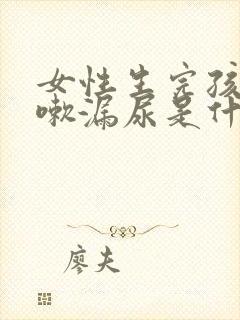 女性生完孩
嗽漏尿是什
廖夫